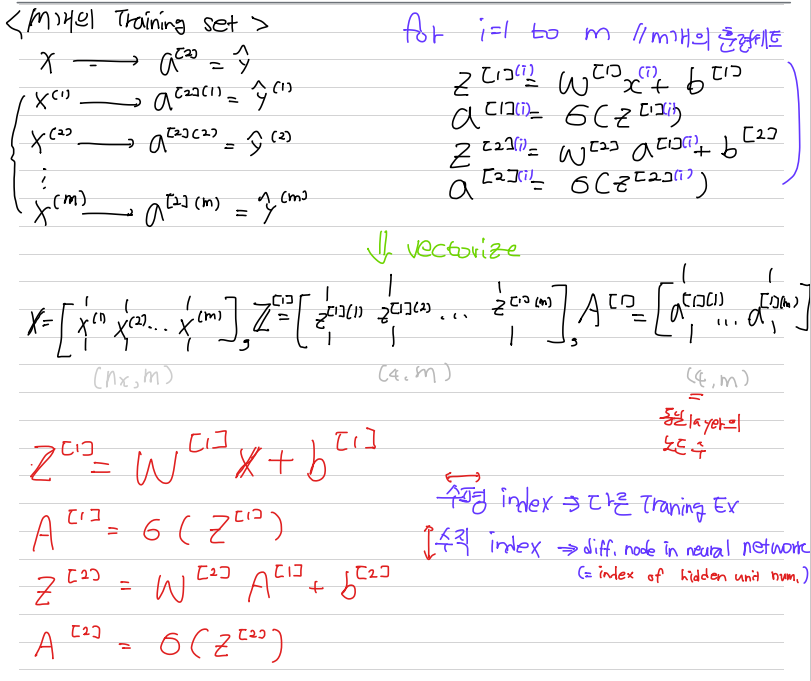 <m개의 Training set>
x → a^[2] = ŷ
x^(1) → a^[2](1) = ŷ^(1)
x^(2) → a^[2](2) = ŷ^(2)
⋮
x^(m) → a^[2](m) = ŷ^(m)
for i=1 to m // m개의 훈련세트
z^[1](i) = W^[1] x^(i) + b^[1]
a^[1](i) = σ(z^[1](i))
z^[2](i) = W^[2] a^[1](i) + b^[2]
a^[2](i) = σ(z^[2](i))
⇓ vectorize
X = [x^(1) x^(2) ... x^(m)], Z^[1] = [z^[1](1) z^[1](2) ... z^[1](m)], A^[1] = [a^[1](1) ... a^[1](m)]
(nx, m) (4, m) (4, m)
=
layer의
노드 수
Z^[1] = W^[1] X + b^[1]
A^[1] = σ(Z^[1])
Z^[2] = W^[2] A^[1] + b^[2]
A^[2] = σ(Z^[2])
↔
수평 index ⇒ 다른 Traning Ex
↕ 수직 index → diff. node in neural network
(= index of hidden unit num.)